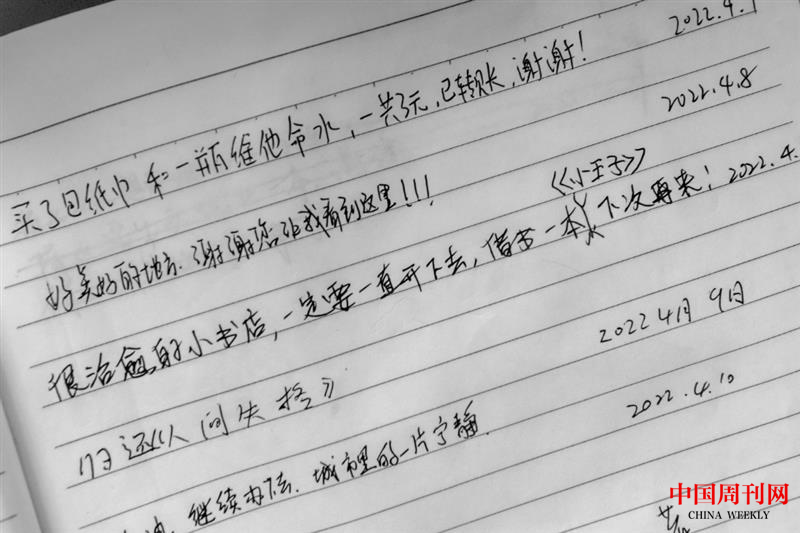 2022.4.7
买了包纸巾和一瓶维他命水，一共3元，已转账，谢谢！
2022.4.8
好美好的地方. 谢谢您让我看到这里!!!
《小王子》
很治愈的小书店，一定要一直开下去，借书一本 下次再来! 2022.4.
归还《人间失格》
2022 4月 9日
继续办下去. 城市里的一片宁静.
2022.4.10
中国周刊网
CHINA WEEKLY